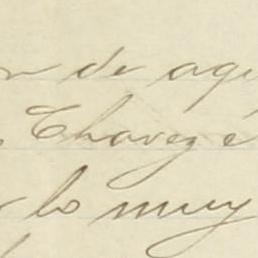 de aqu
Chavez é
lo muy